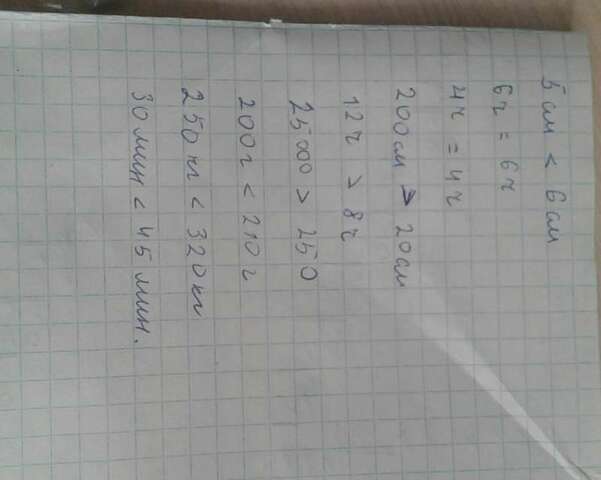 5 см < 6 см
6 ч = 6 ч
4 ч = 4 ч
200 см > 20 см
12 ч > 8 ч
25000 > 250
200 г < 210 г
250 кг < 320 кг
30 мин < 45 мин.